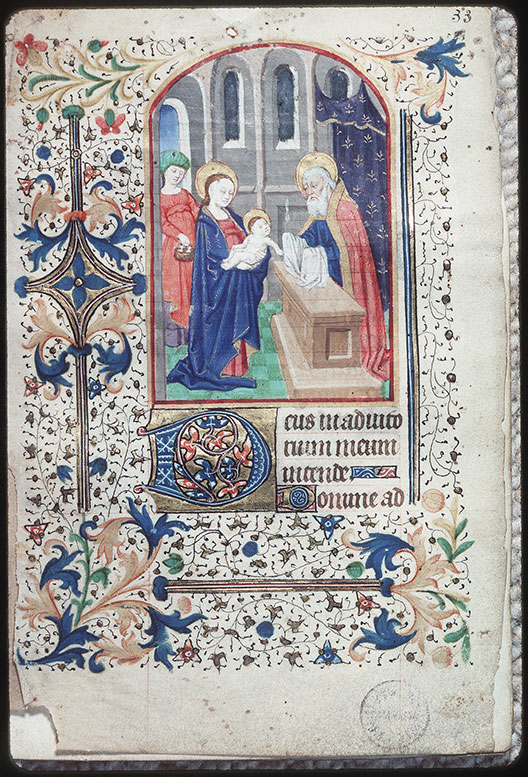 33
Deus in adiuto
rium meum
intende
Domine ad